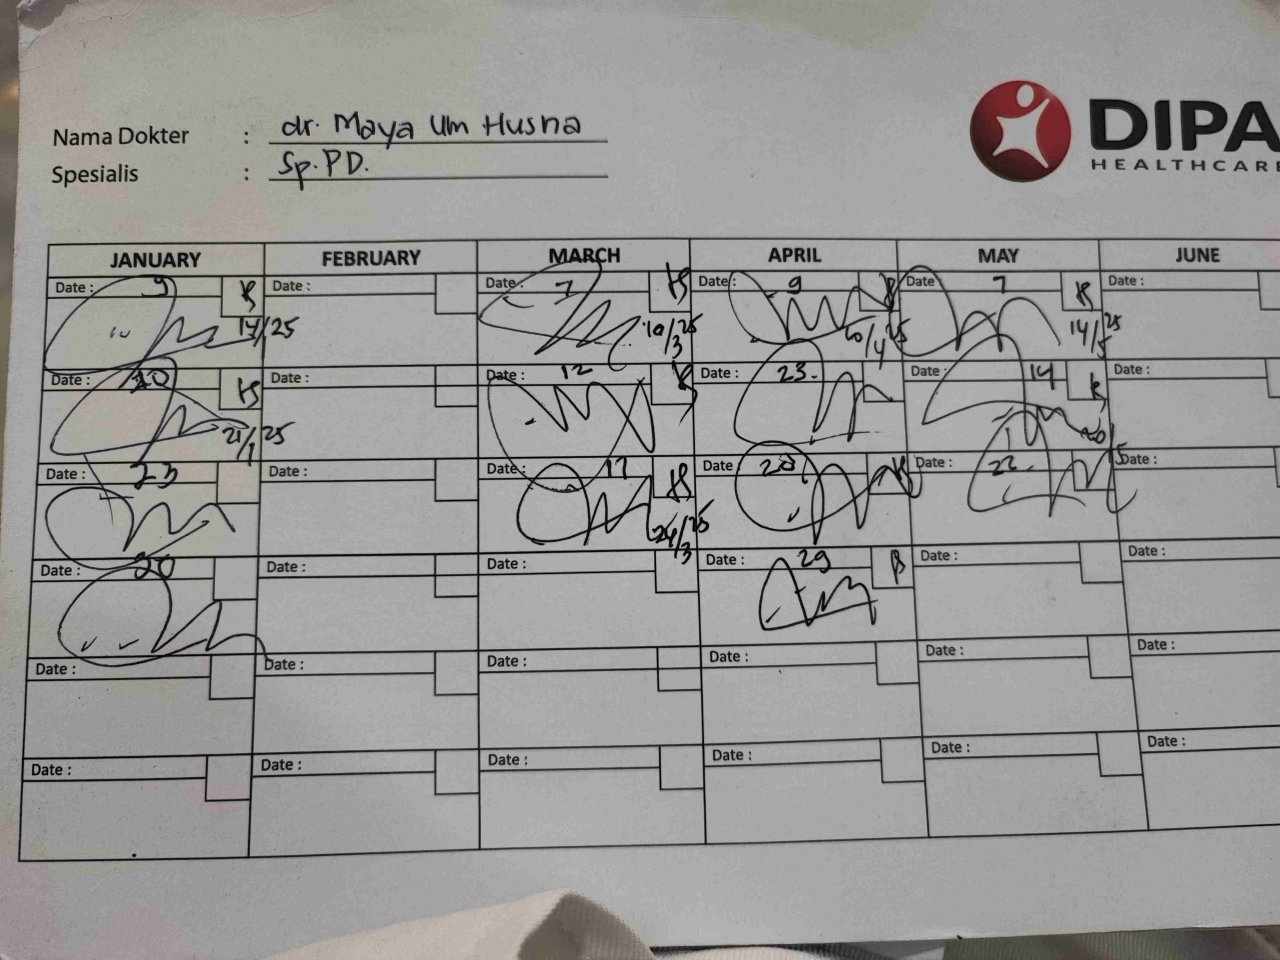 Nama Dokter : dr. Maya Um Husna
Spesialis : Sp.PD.
DIPA
HEALTHCARE
JANUARY FEBRUARY MARCH APRIL MAY JUNE
Date : 9 Date : Date : 7 Date : 9 Date 7 Date :
14/25 10/3 25 10/4 25 14/5 25
Date : 20 Date : Date : 12 Date : 23. Date : 14 Date :
21/1 25 20/5
Date : 23 Date : Date : 17 Date Date : 22. Date :
24/3 25
Date : 30 Date : Date : Date : 29 Date : Date :
Date : Date : Date : Date : Date : Date :
Date : Date : Date : Date : Date : Date :